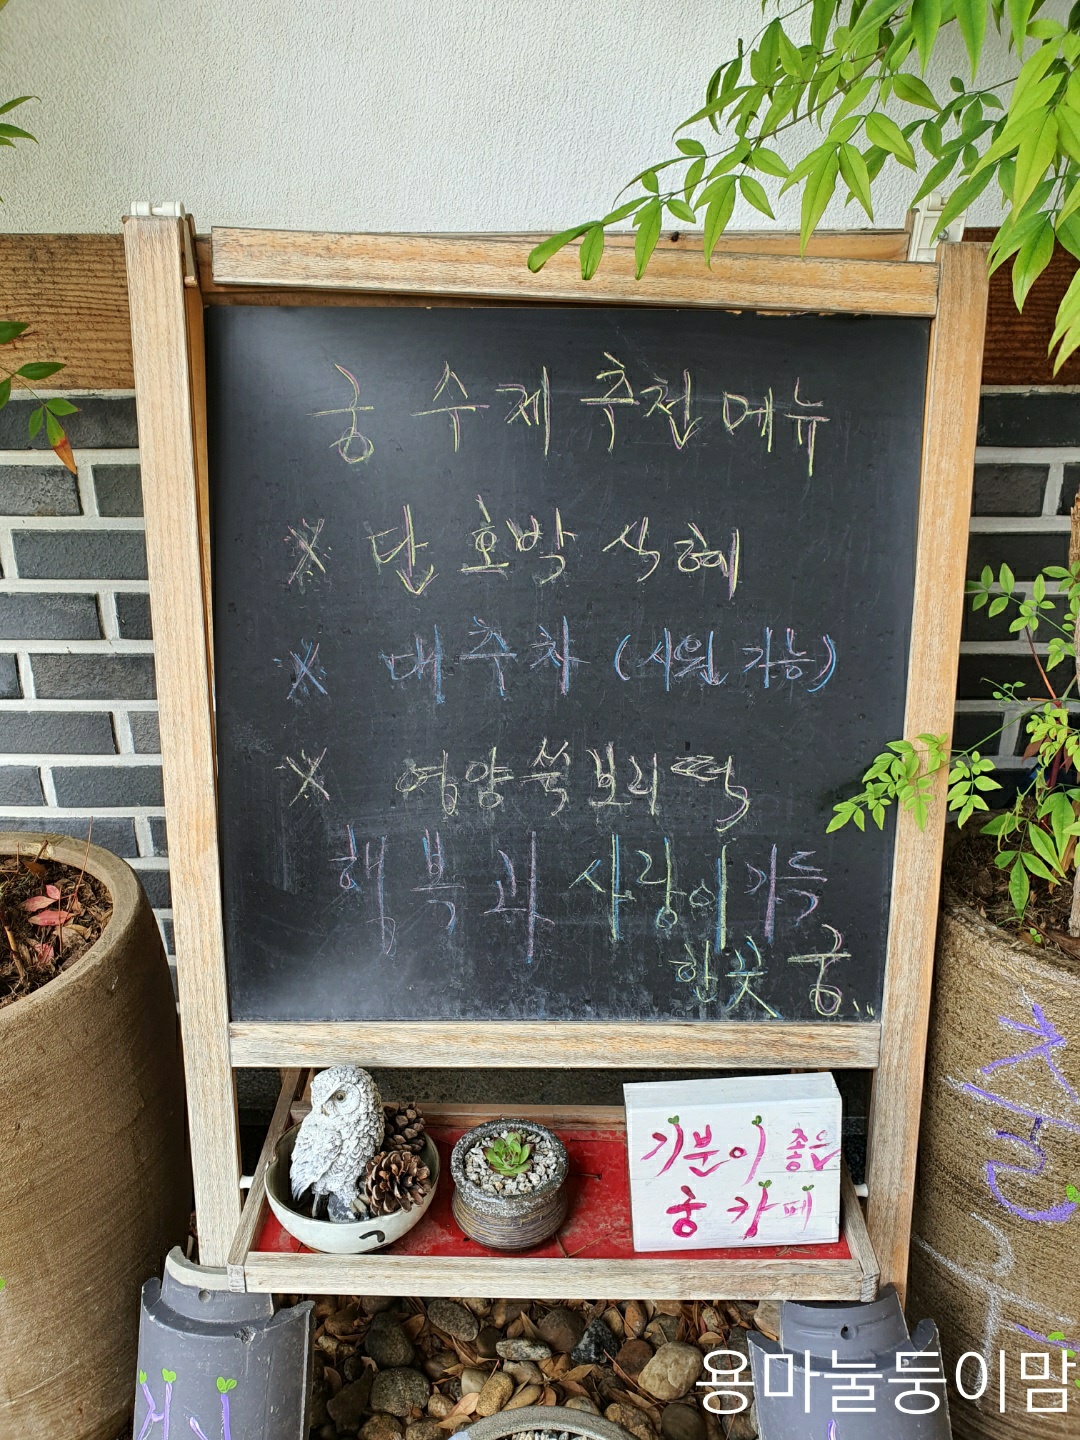 궁 수제 추천 메뉴
※ 단호박 식혜
※ 대추차 (시원 가능)
※ 영양쑥보리떡
행복과 사랑이 가득
한 곳 궁..
기분이 좋은
궁 카페
용마눌둥이맘